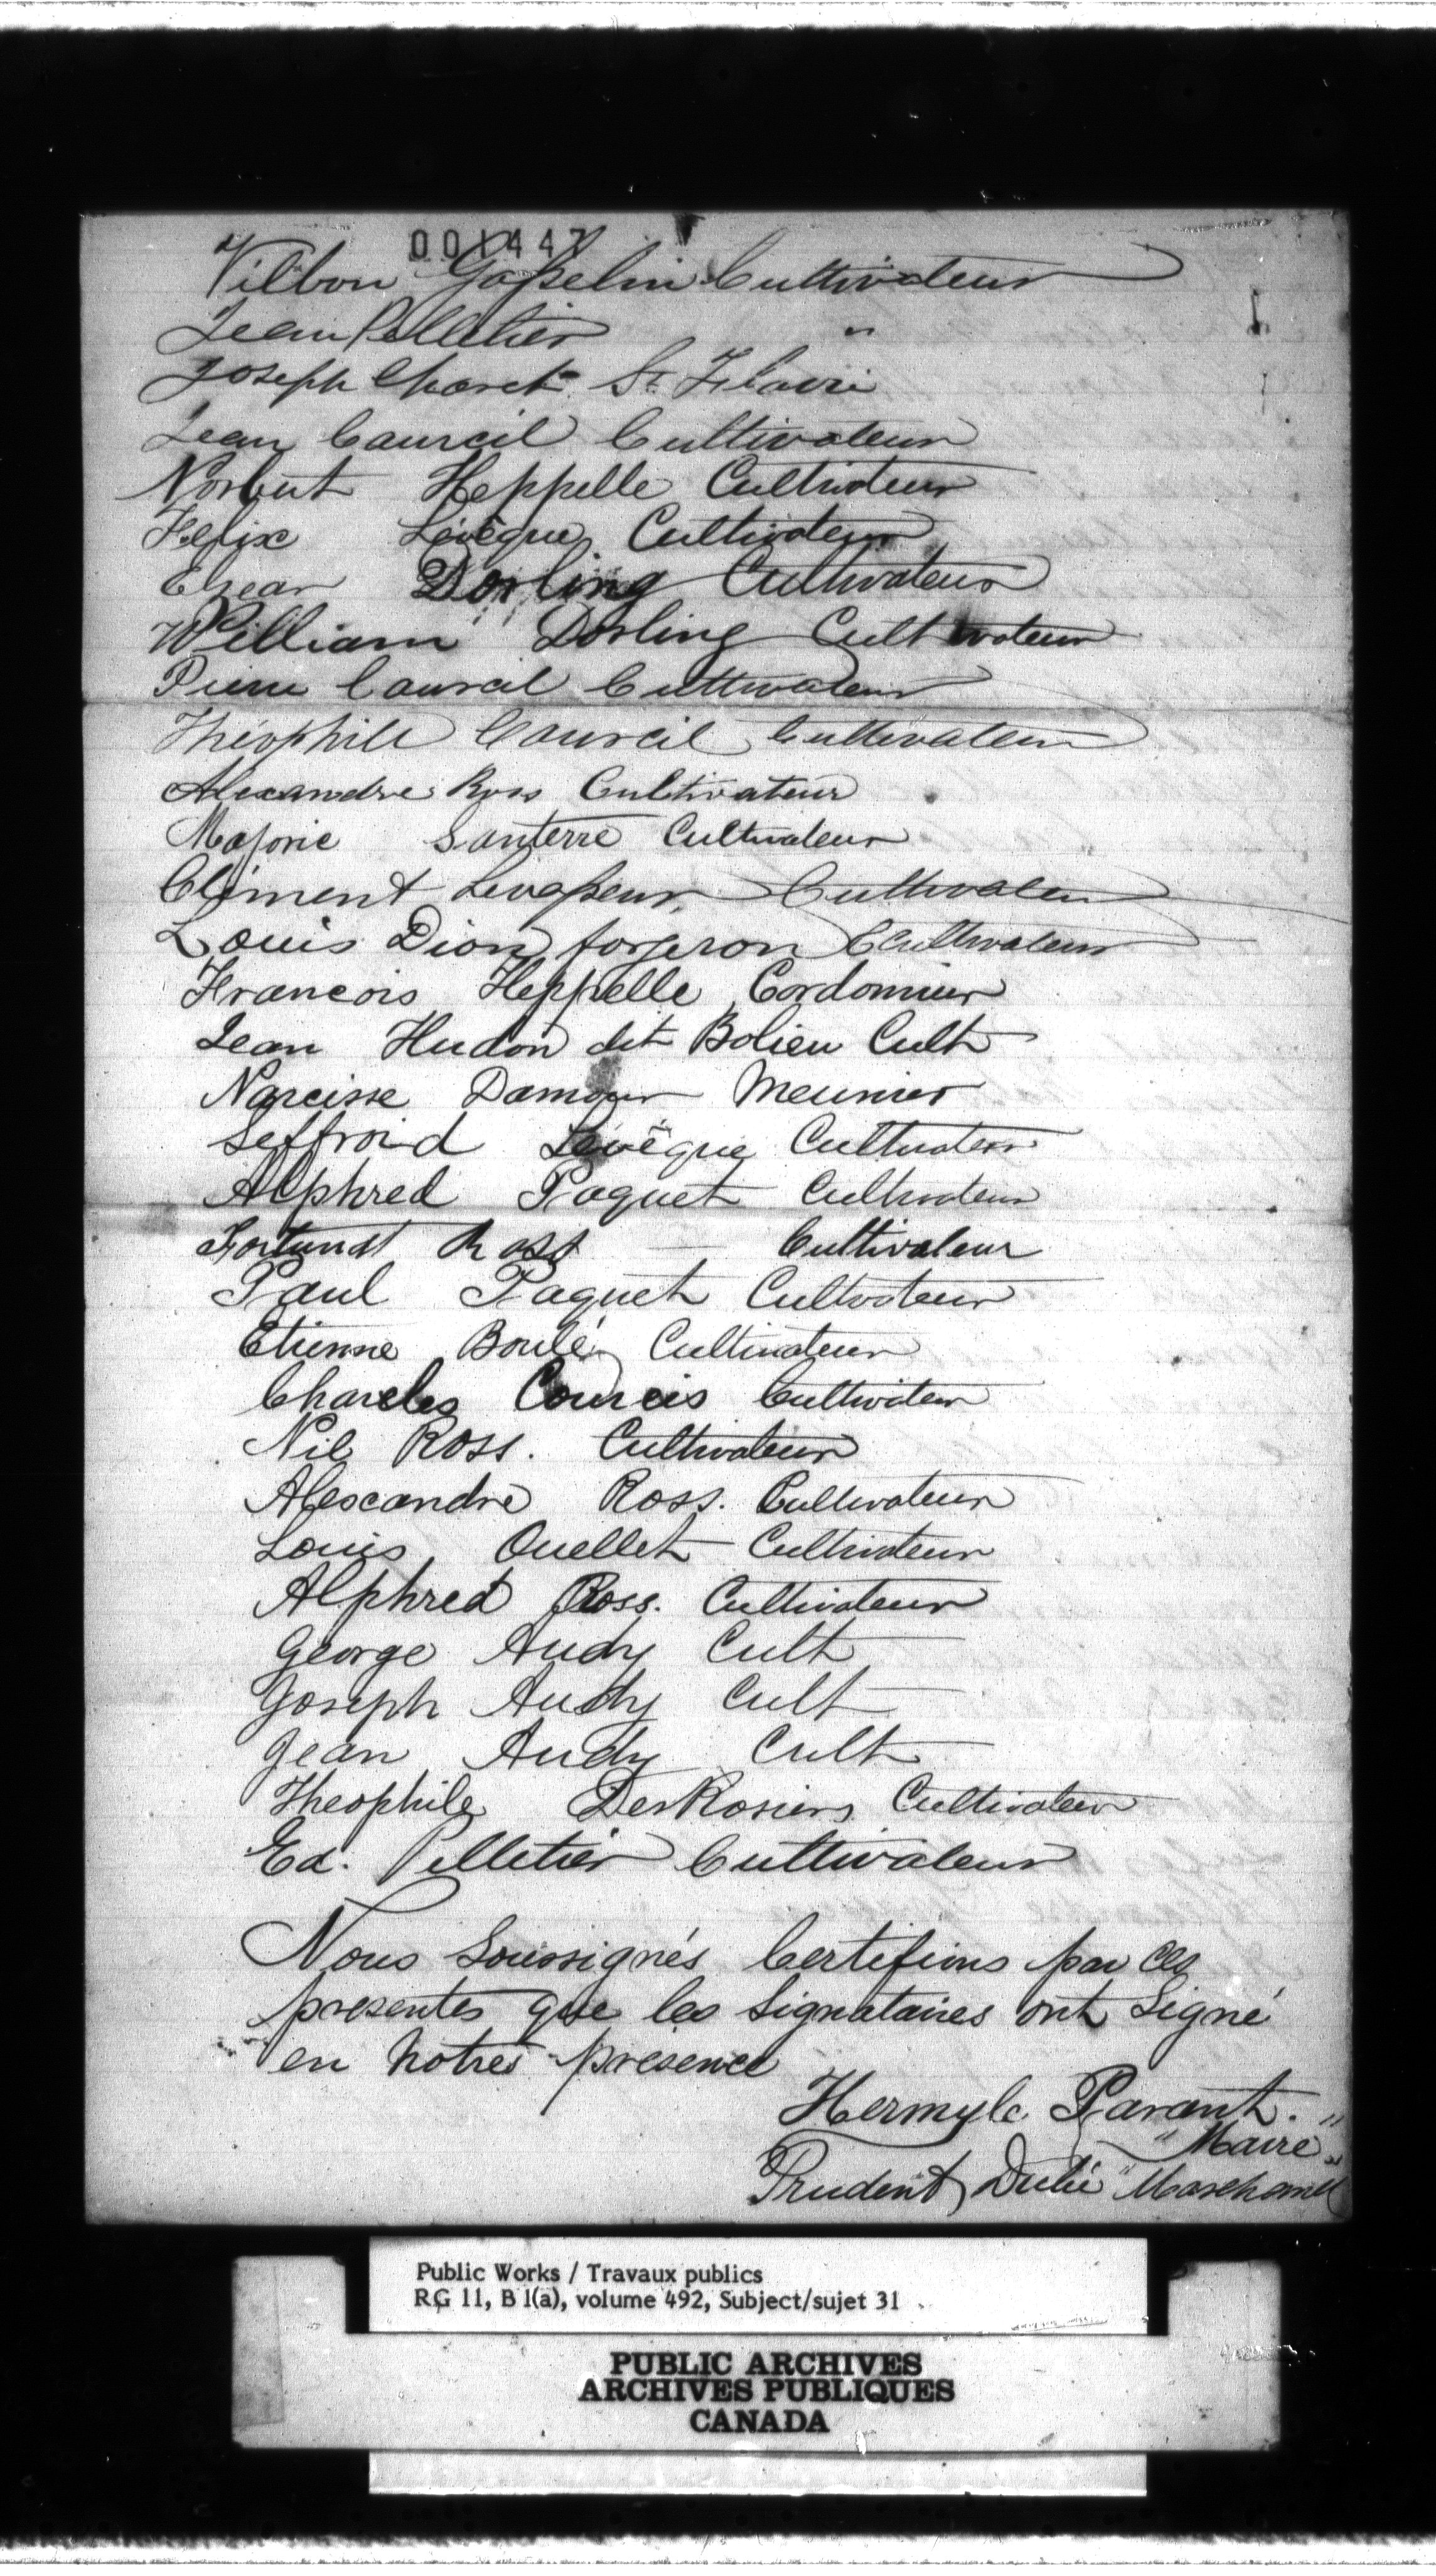 001447
Vilbon Gosselin Cultivateur
Jean Pelletier "
Joseph Charet St Flavie
Jean Caurcil Cultivateur
Norbert Heppelle Cultivateur
Felix Levêque Cultivateur
Elzear Dorling Cultivateur
William Dorling Cultivateur
Pierre Caurcil Cultivateur
Théophile Caurcil Cultivateur
Alexandre Ross Cultivateur
Majorie Santerre Cultivateur
Clément Levasseur Cultivateur
Louis Dion forgeron Cultivateur
Francois Heppelle Cordonnier
Jean Hudon dit Bolieu Cult
Narcisse Damour Meunier
Seffroid Levêque Cultivateur
Alphred Paquet Cultivateur
Fortunat Ross — Cultivateur
Paul Paquet Cultivateur
Etienne Boulé Cultivateur
Charcles Courcis Cultivateur
Nil Ross. Cultivateur
Alexcandre Ross. Cultivateur
Louis Ouellet Cultivateur
Alphred Ross. Cultivateur
George Audy Cult
Joseph Audy Cult
Jean Audy Cult
Theophile DesRosiers Cultivateur
Ed. Pelletier Cultivateur
Nous Soussignés Certifions par ces
presentes que les Signataires ont Signé
en notres presence
Hermyle Parant.
"Maire"
Prudent Dubé "Marchand
Public Works / Travaux publics
RG 11, B 1(a), volume 492, Subject/sujet 31
PUBLIC ARCHIVES
ARCHIVES PUBLIQUES
CANADA